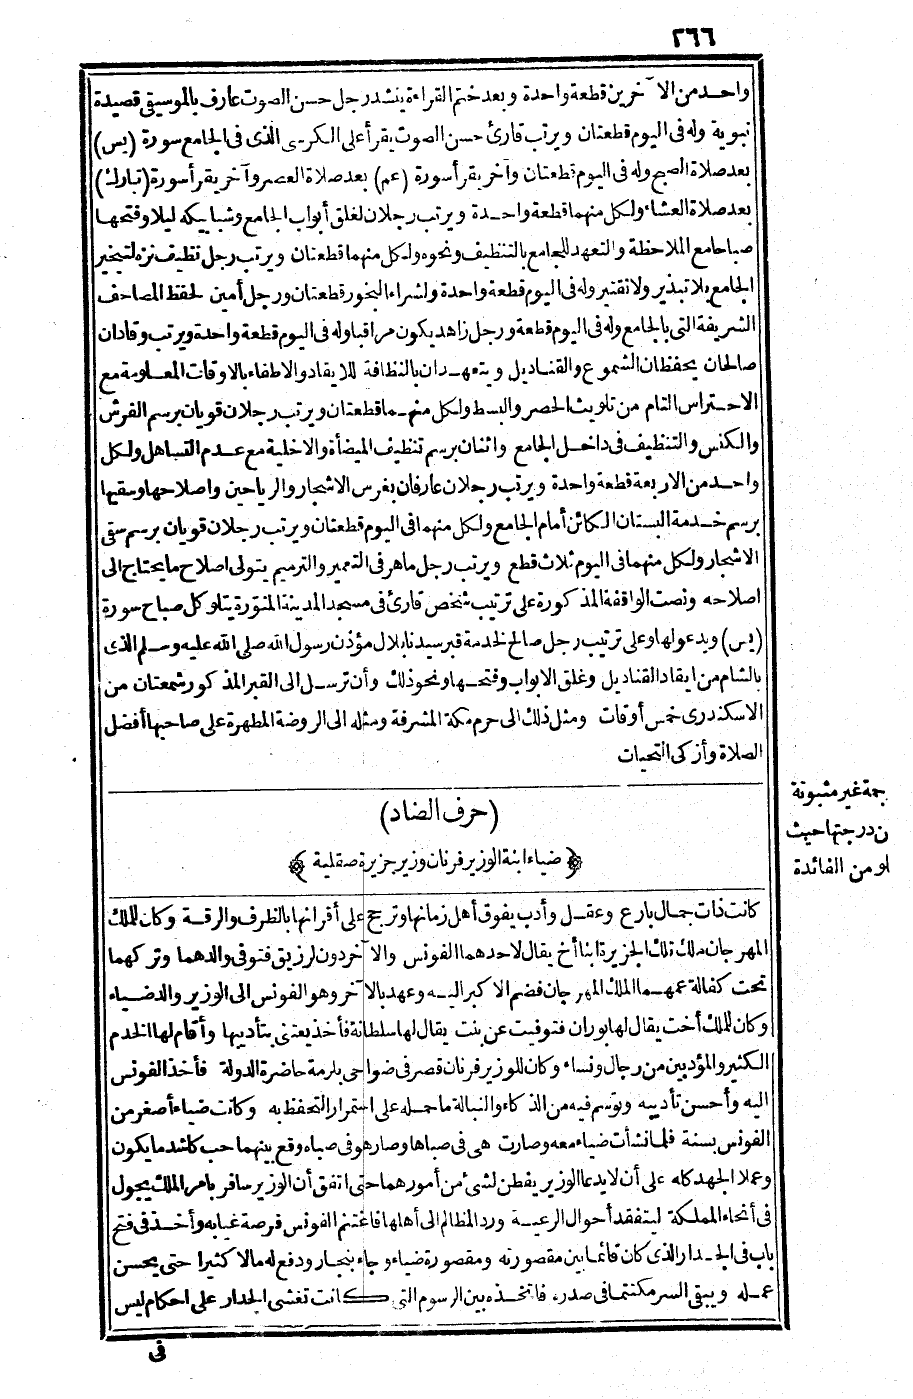 ٢٦٦
واحد من الآخرين قطعة واحدة وبعد ختم القراءة ينشد رجل حسن الصوت عارف بالموسيقى قصيدة
نبوية وله فى اليوم قطعتان ويرتب قارئ حسن الصوت يقرأ على الكرسى الذى فى الجامع سورة (يس)
بعد صلاة الصبح وله فى اليوم قطعتان وآخر يقرأ سورة (عم) بعد صلاة العصر وآخر يقرأ سورة (تبارك)
بعد صلاة العشاء ولكل منهما قطعة واحدة ويرتب رجلان لغلق أبواب الجامع وشبابيكه ليلا وفتحها
صباحا مع الملاحظة والتعهد للجامع بالتنظيف ونحوه ولكل منهما قطعتان ويرتب رجل نظيف نزه لتبخير
الجامع بلا تبذير ولا تقتير وله فى اليوم قطعة واحدة ولشراء البخور قطعتان ورجل أمين لحفظ المصاحف
الشريفة التى بالجامع وله فى اليوم قطعة ورجل زاهد يكون مراقبا وله فى اليوم قطعة واحدة ويرتب وقادان
صالحان يحفظان الشموع والقناديل ويتعهدان بالنظافة للايقاد والاطفاء بالاوقات المعلومة مع
الاحتراس التام من تلويث الحصر والبسط ولكل منهما قطعتان ويرتب رجلان قويان برسم الفرش
والكنس والتنظيف فى داخل الجامع واثنان برسم تنظيف الميضأة والاخلية مع عدم التساهل ولكل
واحد من الاربعة قطعة واحدة ويرتب رجلان عارفان بغرس الاشجار والرياحين واصلاحها وسقيها
برسم خدمة البستان الكائن أمام الجامع ولكل منهما فى اليوم قطعتان ويرتب رجلان قويان برسم سقى
الاشجار ولكل منهما فى اليوم ثلاث قطع ويرتب رجل ماهر فى التعمير والترميم يتولى اصلاح ما يحتاج الى
اصلاحه ونصت الواقفة المذكورة على ترتيب شخص قارئ فى مسجد المدينة المنورة يتلو كل صباح سورة
(يس) ويدعو لها وعلى ترتيب رجل صالح لخدمة قبر سيدنا بلال مؤذن رسول الله صلى الله عليه وسلم الذى
بالشام من ايقاد القناديل وغلق الابواب وفتحها ونحو ذلك وأن ترسل الى القبر المذكور شمعتان من
الاسكندرى خمس أوقات ومثل ذلك الى حرم مكة المشرفة ومثله الى الروضة المطهرة على صاحبها أفضل
الصلاة وأزكى التحيات
(حرف الضاد)
ضياء ابنة الوزير فرنان وزير جزيرة صقلية
كانت ذات جمال بارع وعقل وأدب يفوق أهل زمانها وترجح على أقرانها بالظرف والرقة وكان للملك
المهرجان ملك تلك الجزيرة ابنا أخ يقال لاحدهما الفونس والآخر دون لرزيق فتوفى والدهما وتركهما
تحت كفالة عمهما الملك المهرجان فضم الاكبر اليه وعهد بالآخر وهو الفونس الى الوزير والد ضياء
وكان للملك أخت يقال لها بوران فتوفيت عن بنت يقال لها سلطانة فأخذ يعتنى بتأديبها وأقام لها الخدم
الكثير والمؤدبين من رجال ونساء وكان للوزير فرنان قصر فى ضواحى بلرمة حاضرة الدولة فأخذ الفونس
اليه وأحسن تأديبه وتوسم فيه من الذكاء والنبالة ما حمله على استمرار التحفظ به وكانت ضياء أصغر من
الفونس بسنة فلما نشأت ضياء معه وصارت هى فى صباها وصار هو فى صباه وقع بينهما حب كأشد ما يكون
وعملا الجهد كله على أن لا يدعا الوزير يفطن لشئ من أمورهما حتى اتفق أن الوزير سافر بأمر الملك يجول
فى أنحاء المملكة ليتفقد أحوال الرعية ورد المظالم الى أهلها فاغتنم الفونس فرصة غيابه وأخذ فى فتح
باب فى الجدار الذى كان قائما بين مقصورته ومقصورة ضياء وجاء بنجار ودفع له مالا كثيرا حتى يحسن
عمله ويبقى السر مكتتما فى صدره فاتخذه بين الرسوم التى كانت تغشى الجدار على احكام ليس
فى
جمة غير مثبوتة
ن درجتها حيث
لو من الفائدة